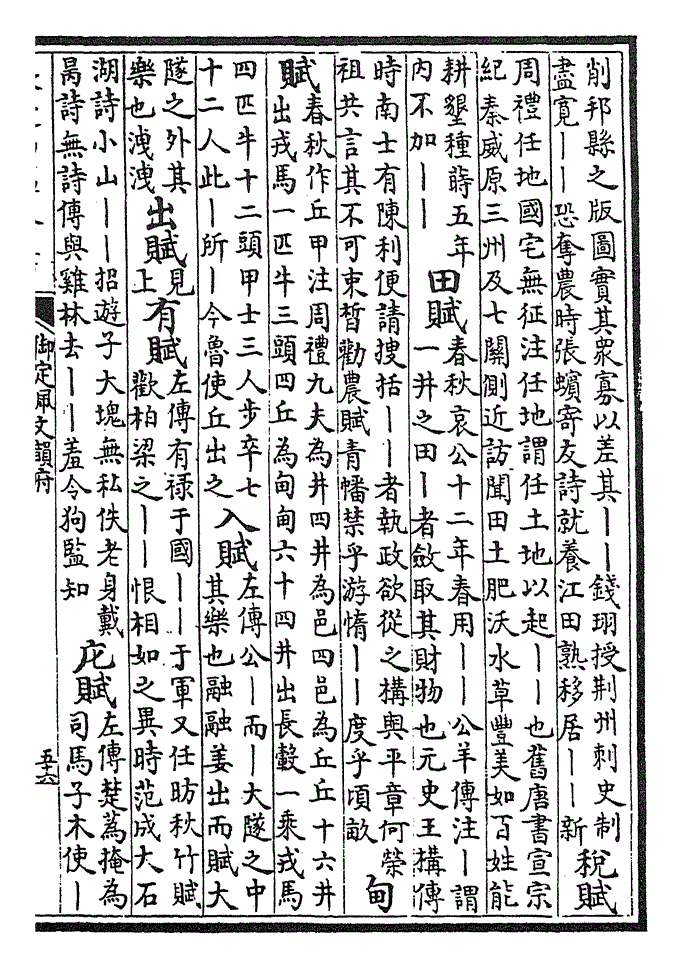 削邦縣之版圖實其衆寡以差其丨丨錢珝授荆州刺史制
盡寛丨丨恐奪農時張蠙寄友詩就養江田熟移居丨丨新
稅賦
周禮任地國宅無征注任地謂任土地以起丨丨也舊唐書宣宗
紀秦威原三州及七關側近訪聞田土肥沃水草豐美如百姓能
耕墾種蒔五年
内不加丨丨
田賦
春秋哀公十二年春用丨丨公羊傳注丨謂
一井之田丨者斂取其財物也元史王構傳
時南士有陳利便請搜括丨丨者執政欲從之構與平章何榮
祖共言其不可束晳勸農賦青幡禁乎游惰丨丨度乎頃畝
甸
賦
春秋作丘甲注周禮九夫為井四井為邑四邑為丘丘十六井
出戎馬一匹牛三頭四丘為甸甸六十四井出長轂一乘戎馬
四匹牛十二頭甲士三人步卒七
十二人此丨所丨今魯使丘出之
入賦
左傳公丨而丨大隧之中
其樂也融融姜出而賦大
隧之外其
樂也洩洩
出賦
見
上
有賦
左傳有禄于國丨丨于軍又任昉秋竹賦
歡柏梁之丨丨恨相如之異時范成大石
湖詩小山丨丨招遊子大塊無私佚老身戴
昺詩無詩傳與雞林去丨丨羞令狗監知
庀賦
左傳楚蒍掩為
司馬子木使丨
御定佩文韻府
五十六